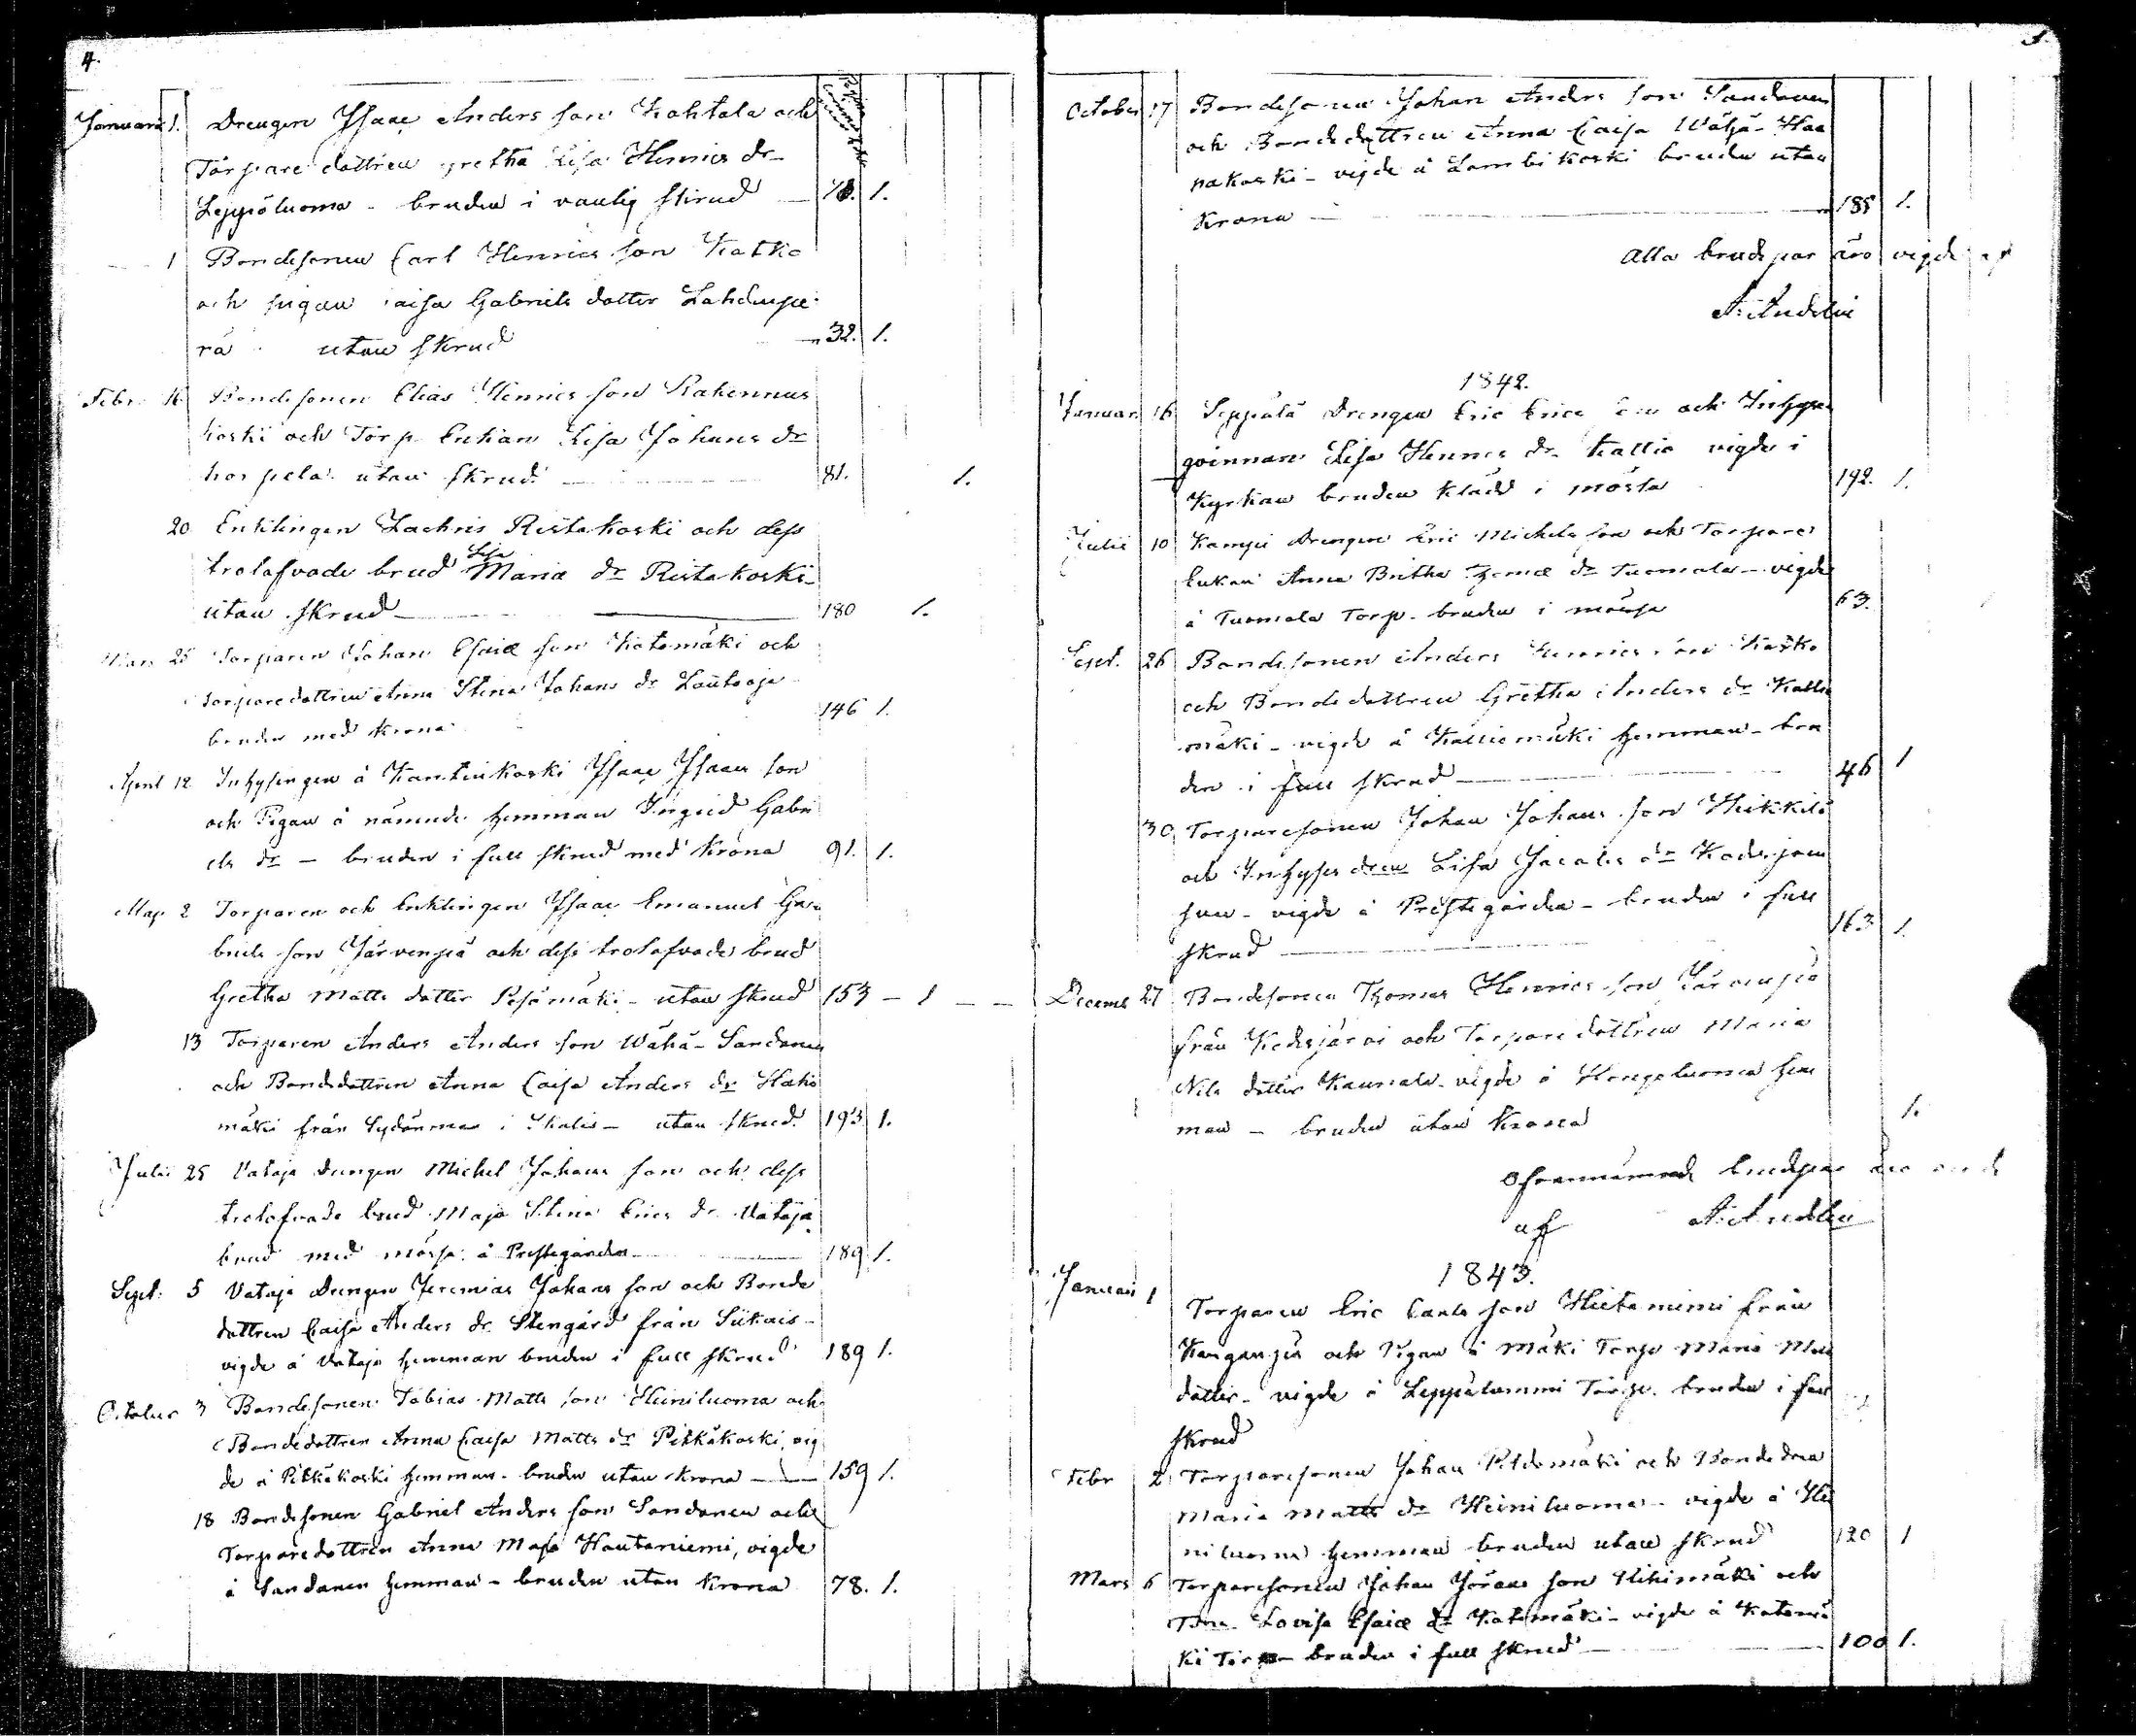 4.
Januarii 1. Drengen Isaac Anders son Kohtala och
Torpare dottren gretha Lisa Henrics dr
Leppöluoma - bruden i vanlig skrud 1.
1 Bondesonen Carl Henrics son Katko
och pigan Caisa Gabriels dotter Lahdenpe
rä utan skrud 32. 1.
Febr. 16 Bondesonen Elias Henrics son Rahennus
koski och Torp. Enkan Lisa Johans dr
utan skrud 81. 1.
20 Enklingen Zachris Ristakoski och dess
trolofvade brud Lisa Maria dr Ristakoski
utan skrud 180 1.
Mars 25 Torparen Johan Esaiæ son Katomäki och
Torparedottren Anna Stina Johans dr
bruden med krona 146 1.
April 12 Inhysingen å Kantinkoski Isaac Isaacs son
och Pigan å nämnde hemman Ingrid Gabri
els dr - bruden i full skrud med krona 91. 1.
Maji 2 Torparen och Enklingen Isaac Emanuel Ga
briels son Järvenpä och dess trolofvade brud
Gretha Matts dotter Pesämäki - utan skrud 153 - 1 - -
13 Torparen Anders Anders son Wähä-Sandanen
och Bondedottren Anna Caisa Anders dr
mäki från Sydänmaa i Ikalis - utan skrud 193 1.
Julii 25 Vataja Drengen Michel Johans son och dess
trolofvade brud Maja Stina Erics dr Vataja
brud med mössa å Prestegården 189 1.
Sept. 5 Vataja Drengen Jeremias Johans son och Bonde
dottren Caisa Anders dr Stengård från Siikais -
vigde å Vataja hemman bruden i full skrud 189 1.
October 3 Bondesonen Tobias Matts son Heiniluoma och
Bondedottren Anna Caisa Matts dr Pitkäkoski, vig
de å Pitkäkoski hemman - bruden utan krona 159 1.
18 Bondesonen Gabriel Anders son Sandanen och
Torparedottren Anna Maja Hautaniemi, vigde
å Sandanen hemman - bruden utan krona 78. 1.
5.
October 17 Bondesonen Johan Anders son Sandanen
och Bondedottren Anna Caisa Wähä-Haa
pakoski - vigde å Lambikoski bruden utan
krona 1.
Alla brudpar äro vigde af
A: Andelin
1842.
Januar 16 Seppälä Drengen Eric Erics son och Inhyses
qvinnan Lisa Henrics dr Kallio vigde i
Kyrkan bruden klädd i mössa 192. 1.
Julii 10 Kampi Drengen Eric Michels son och Torpare
Enkan Anna Britha dr Tuomala - vigde
å Tuomala Torp. bruden i mössa 63.
Sept. 26 Bondesonen Anders Henrics son Katko
och Bondedottren Gretha Anders dr Kallio
mäki - vigde å Kalliomäki hemman - bru
den i full skrud 46 1
30 Torparesonen Johan Johans son Heikkilä
och Lisa Jacobs dr
- vigde å Prestegården - bruden i full
skrud 163 1.
Decemb 27 Bondesonen Thomas Henrics son Järvenpä
från Kedisjärvi och Torparedottren Maria
Nils dotter - vigde å Hongoluoma hem
man - bruden utan krona 1.
Ofvannämnde brudpar äro
af A: Andelin
1843.
Januari 1 Torparen Eric Carls son Hietaniemi från
Kanganpä och Pigan å Mäki Torp Maria
dotter - vigde å Leppälammi Torp. bruden i full
skrud
Febr 2 Torparesonen Johan och Bondedrn
Maria Matts dr Heiniluoma - vigde å Hei
niluoma hemman bruden utan skrud 120 1
Mars 6 Torparesonen Johan Jörans son och
Lovisa Esaiæ dr Katomäki - vigde å Katomä
ki Torp - bruden i full skrud 100 1.